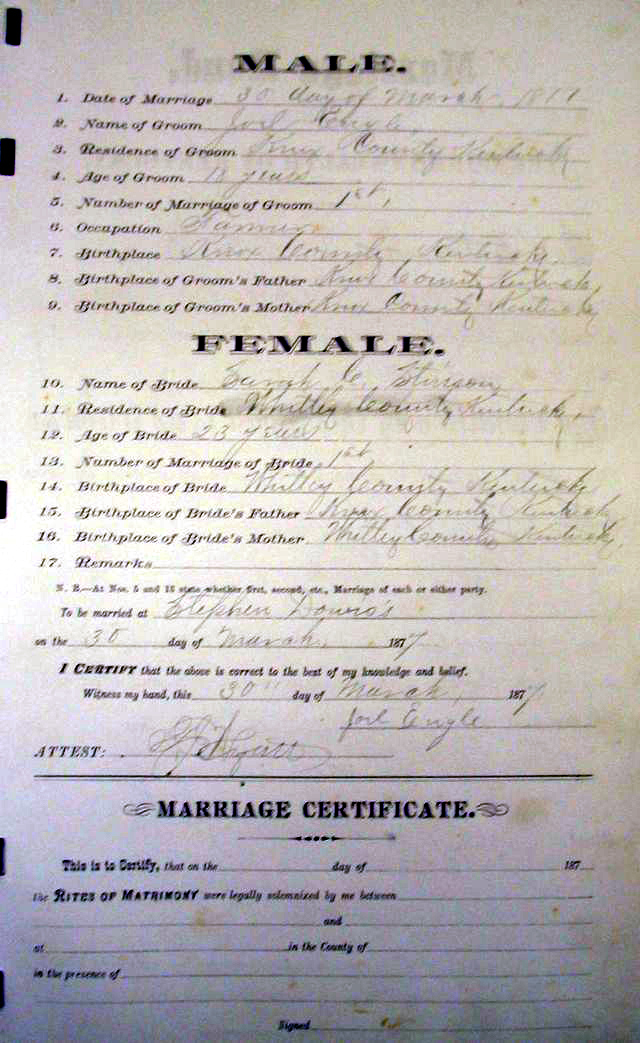 MALE.
1. Date of Marriage 30 day of March, 1877
2. Name of Groom Joel Engle,
3. Residence of Groom Knox County Kentucky
4. Age of Groom years
5. Number of Marriage of Groom 1st,
6. Occupation Farmer
7. Birthplace Knox County, Kentucky,
8. Birthplace of Groom's Father Knox County Kentucky,
9. Birthplace of Groom's Mother Knox County Kentucky
FEMALE.
10. Name of Bride Sarah E. Stinson
11. Residence of Bride Whitley County Kentucky,
12. Age of Bride 23 years
13. Number of Marriage of Bride 1st
14. Birthplace of Bride Whitley County Kentucky
15. Birthplace of Bride's Father Knox County Kentucky
16. Birthplace of Bride's Mother Whitley County Kentucky,
17. Remarks
N. B.—At Nos. 5 and 13 state whether first, second, etc., Marriage of each or either party.
To be married at Stephen
on the 30 day of March, 1877
I CERTIFY that the above is correct to the best of my knowledge and belief.
Witness my hand, this 30" day of March, 1877,
Joel Engle
ATTEST:
MARRIAGE CERTIFICATE.
This is to Certify, that on the day of 187
the RITES OF MATRIMONY were legally solemnized by me between
and
at in the County of
in the presence of
Signed